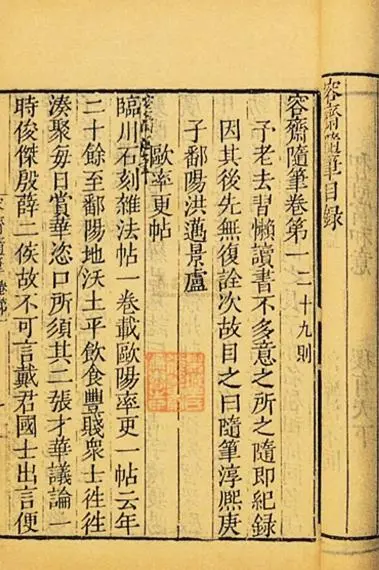 容齋隨筆目録
容齋隨筆卷第一二十九則
予老去習懶讀書不多意之所之隨即紀録
因其後先無復詮次故目之曰隨筆淳熙庚
子鄱陽洪邁景盧
歐率更帖
臨川石刻雜法帖一卷載歐陽率更一帖云年
二十餘至鄱陽地沃土平飲食豐賤衆士徃徃
湊聚每日賞華恣口所須其二張才華議論一
時俊傑殷薛二侯故不可言戴君國士出言便